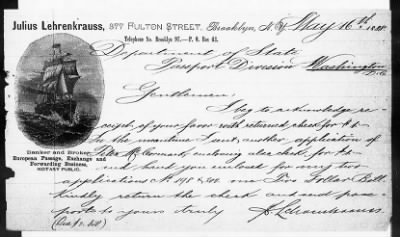 Julius Lehrenkrauss, 377 FULTON STREET, Brooklyn, N.Y. May 16th 1888
Telephone No. Brooklyn 97. — P. O. Box 41.
Department of State
Passport Division Washington
D.C.
Gentlemen:
I beg to acknowledge re-
ceipt of your favor with returned check for $1
In the meantime I sent another application of
McCormack, enclosing also check for $1
and hand you enclosed for next two
applications No 198 & one Two Dollar Bill
Kindly return the check and send pass-
ports to yours truly J. Lehrenkrauss
(One $2. bill)
Banker and Broker,
European Passage, Exchange and
Forwarding Business,
NOTARY PUBLIC.